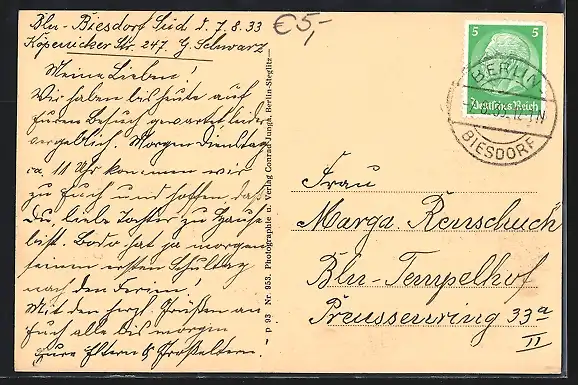 Bln-Biesdorf Süd d. 7.8.33
Köpenicker Str. 247. G. Schwarz
€5,-
Meine Lieben!
Wir haben bis heute auf
Euren Besuch gewartet leider
vergeblich. Morgen Dienstag
ca. 11 Uhr kommen wir
zu Euch und hoffen, daß
Du, liebe Tochter zu Hause
bist. Bodo hat ja morgen
seinen ersten Schultag
nach den Ferien!
Mit den herzl. Grüßen an
Euch alle bis morgen
Eure Eltern & Großeltern!
p 93 Nr. 953. Photographie u. Verlag Conrad Junga, Berlin-Steglitz
5 5
Deutsches Reich
BERLIN
BIESDORF
Frau
Marga. Renschuch
Bln-Tempelhof
Preussenring 33a
II